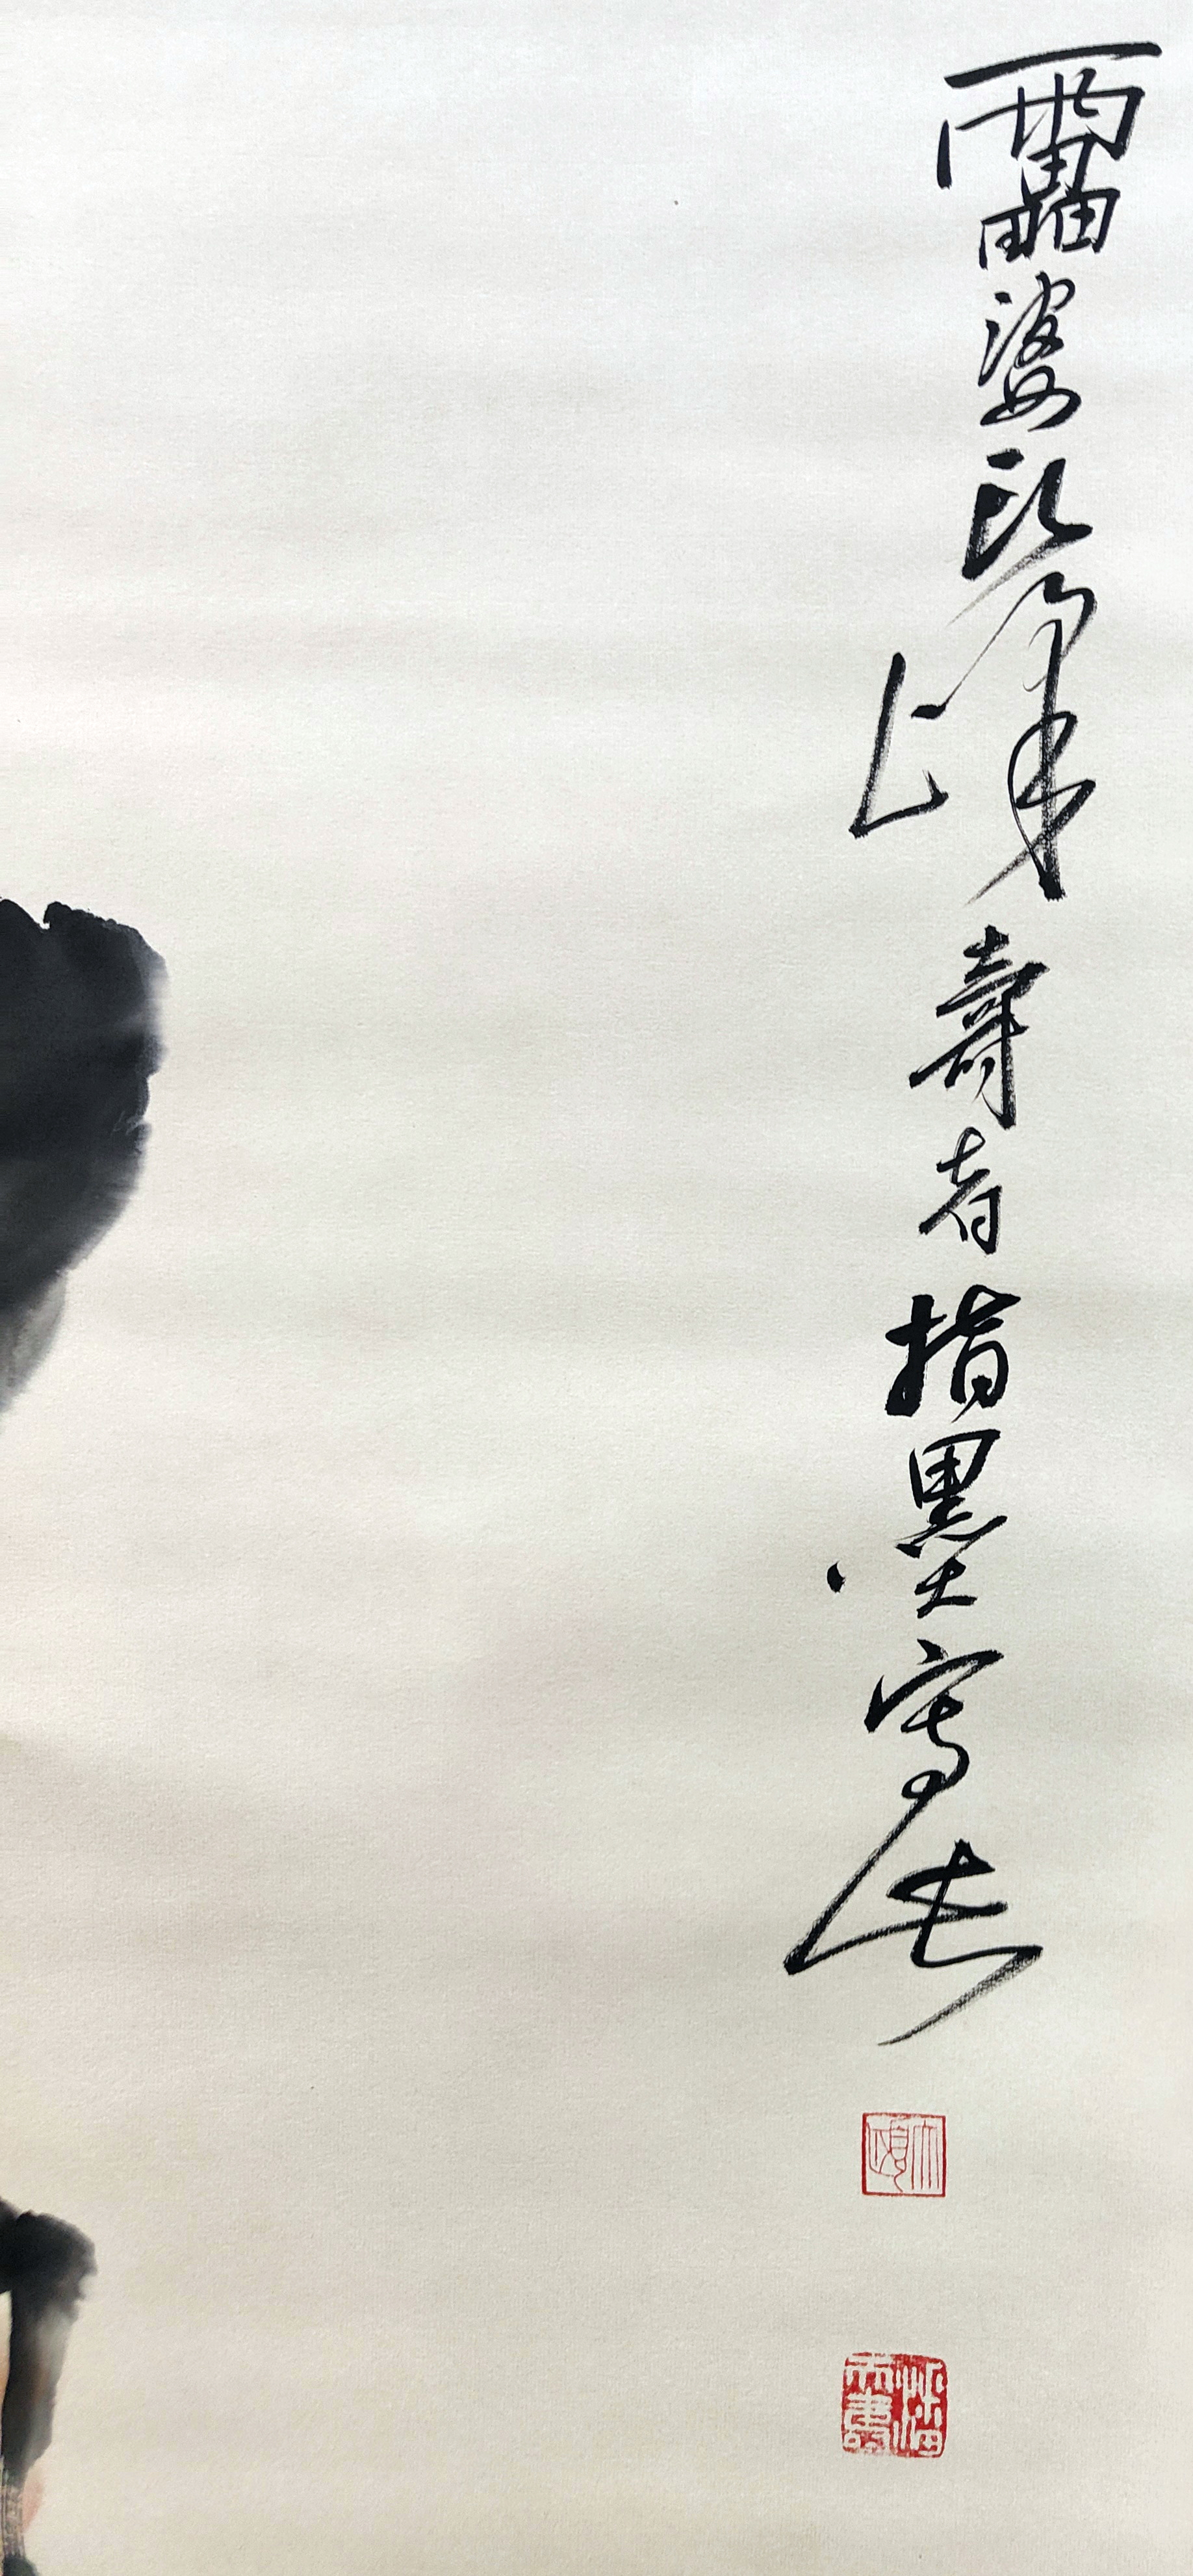 靁婆頭峰壽者指墨寫
潘天壽